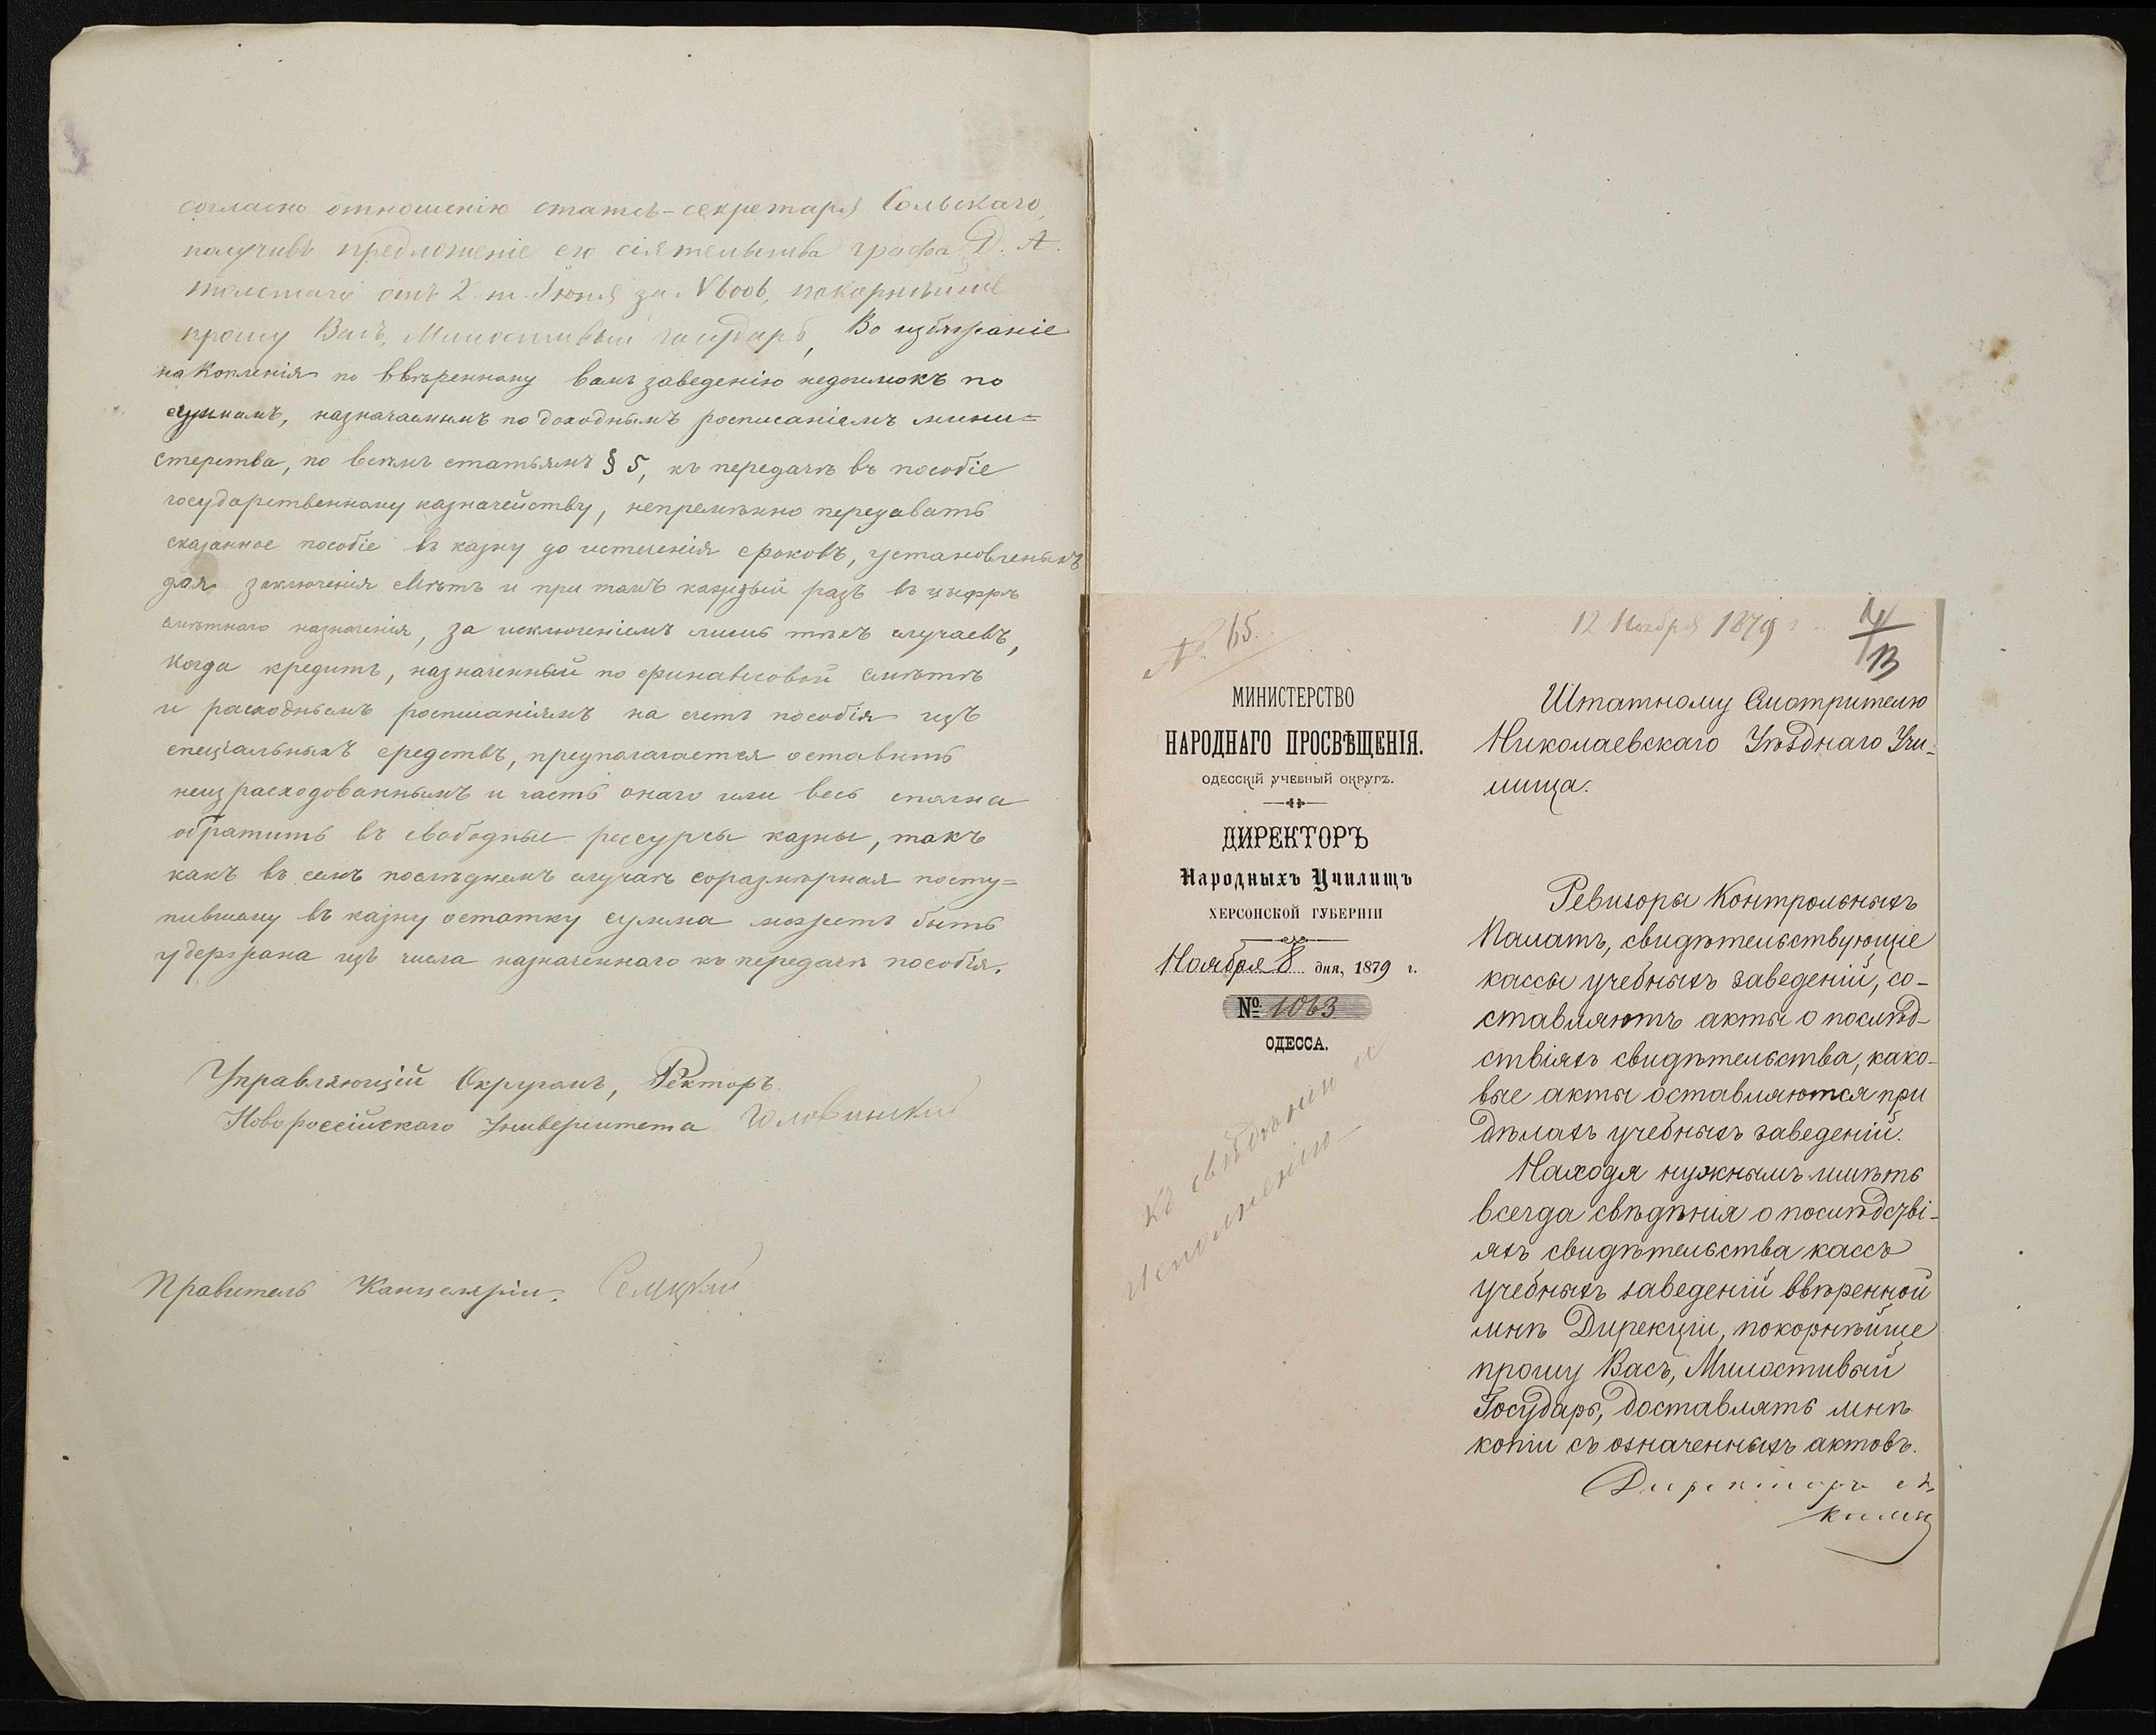 согласно отношенію статсъ-секретаря Сольскаго,
получивъ предложеніе его сіятельства графа Д. А.
Толстаго отъ 2 т. Іюня за № 6006, покорнѣйше
прошу Васъ, Милостивый Государь, Во избѣжаніе
накопленія по ввѣренному вамъ заведенію недоимокъ по
суммамъ, назначаемымъ по доходнымъ росписаніямъ мини=
стерства, по всѣмъ статьямъ § 5, къ передачѣ въ пособіе
государственному казначейству, непремѣнно передавать
сказанное пособіе въ казну до истеченія сроковъ, установленныхъ
для заключенія смѣтъ и при томъ каждый разъ въ цыфрѣ
смѣтнаго назначенія, за исключеніемъ лишь тѣхъ случаевъ,
когда кредитъ, назначенный по финансовой смѣтѣ
и расходнымъ росписаніямъ на счетъ пособія изъ
спеціальныхъ средствъ, предполагается оставить
неизрасходованнымъ и часть онаго или весь сполна
обратить въ свободные рессурсы казны, такъ
какъ въ семъ послѣднемъ случаѣ соразмѣрная посту=
пившему въ казну остатку сумма можетъ быть
удержана изъ числа назначеннаго къ передачѣ пособія.
Управляющій Округомъ, Ректоръ
Новороссійскаго Университета Головинскій
Правитель Канцеляріи.
№ 65.
12 Ноября 1879 г.
МИНИСТЕРСТВО
НАРОДНАГО ПРОСВѢЩЕНІЯ.
ОДЕССКІЙ УЧЕБНЫЙ ОКРУГЪ.
ДИРЕКТОРЪ
Народныхъ Училищъ
ХЕРСОНСКОЙ ГУБЕРНІИ
Ноября 8 дня, 1879 г.
№ 1063
ОДЕССА.
Къ свѣдѣнію и
исполненію
Штатному Смотрителю
Николаевскаго Уѣзднаго Учи-
лища.
Ревизоры Контрольныхъ
Палатъ, свидѣтельствующіе
кассы учебныхъ заведеній, со-
ставляютъ акты о послѣд-
ствіяхъ свидѣтельства, како-
вые акты оставляются при
дѣлахъ учебныхъ заведеній.
Находя нужнымъ имѣть
всегда свѣдѣнія о послѣдстві-
яхъ свидѣтельства кассъ
учебныхъ заведеній ввѣренной
мнѣ Дирекціи, покорнѣйше
прошу Васъ, Милостивый
Государь, доставлять мнѣ
копіи съ означенныхъ актовъ.
Директоръ